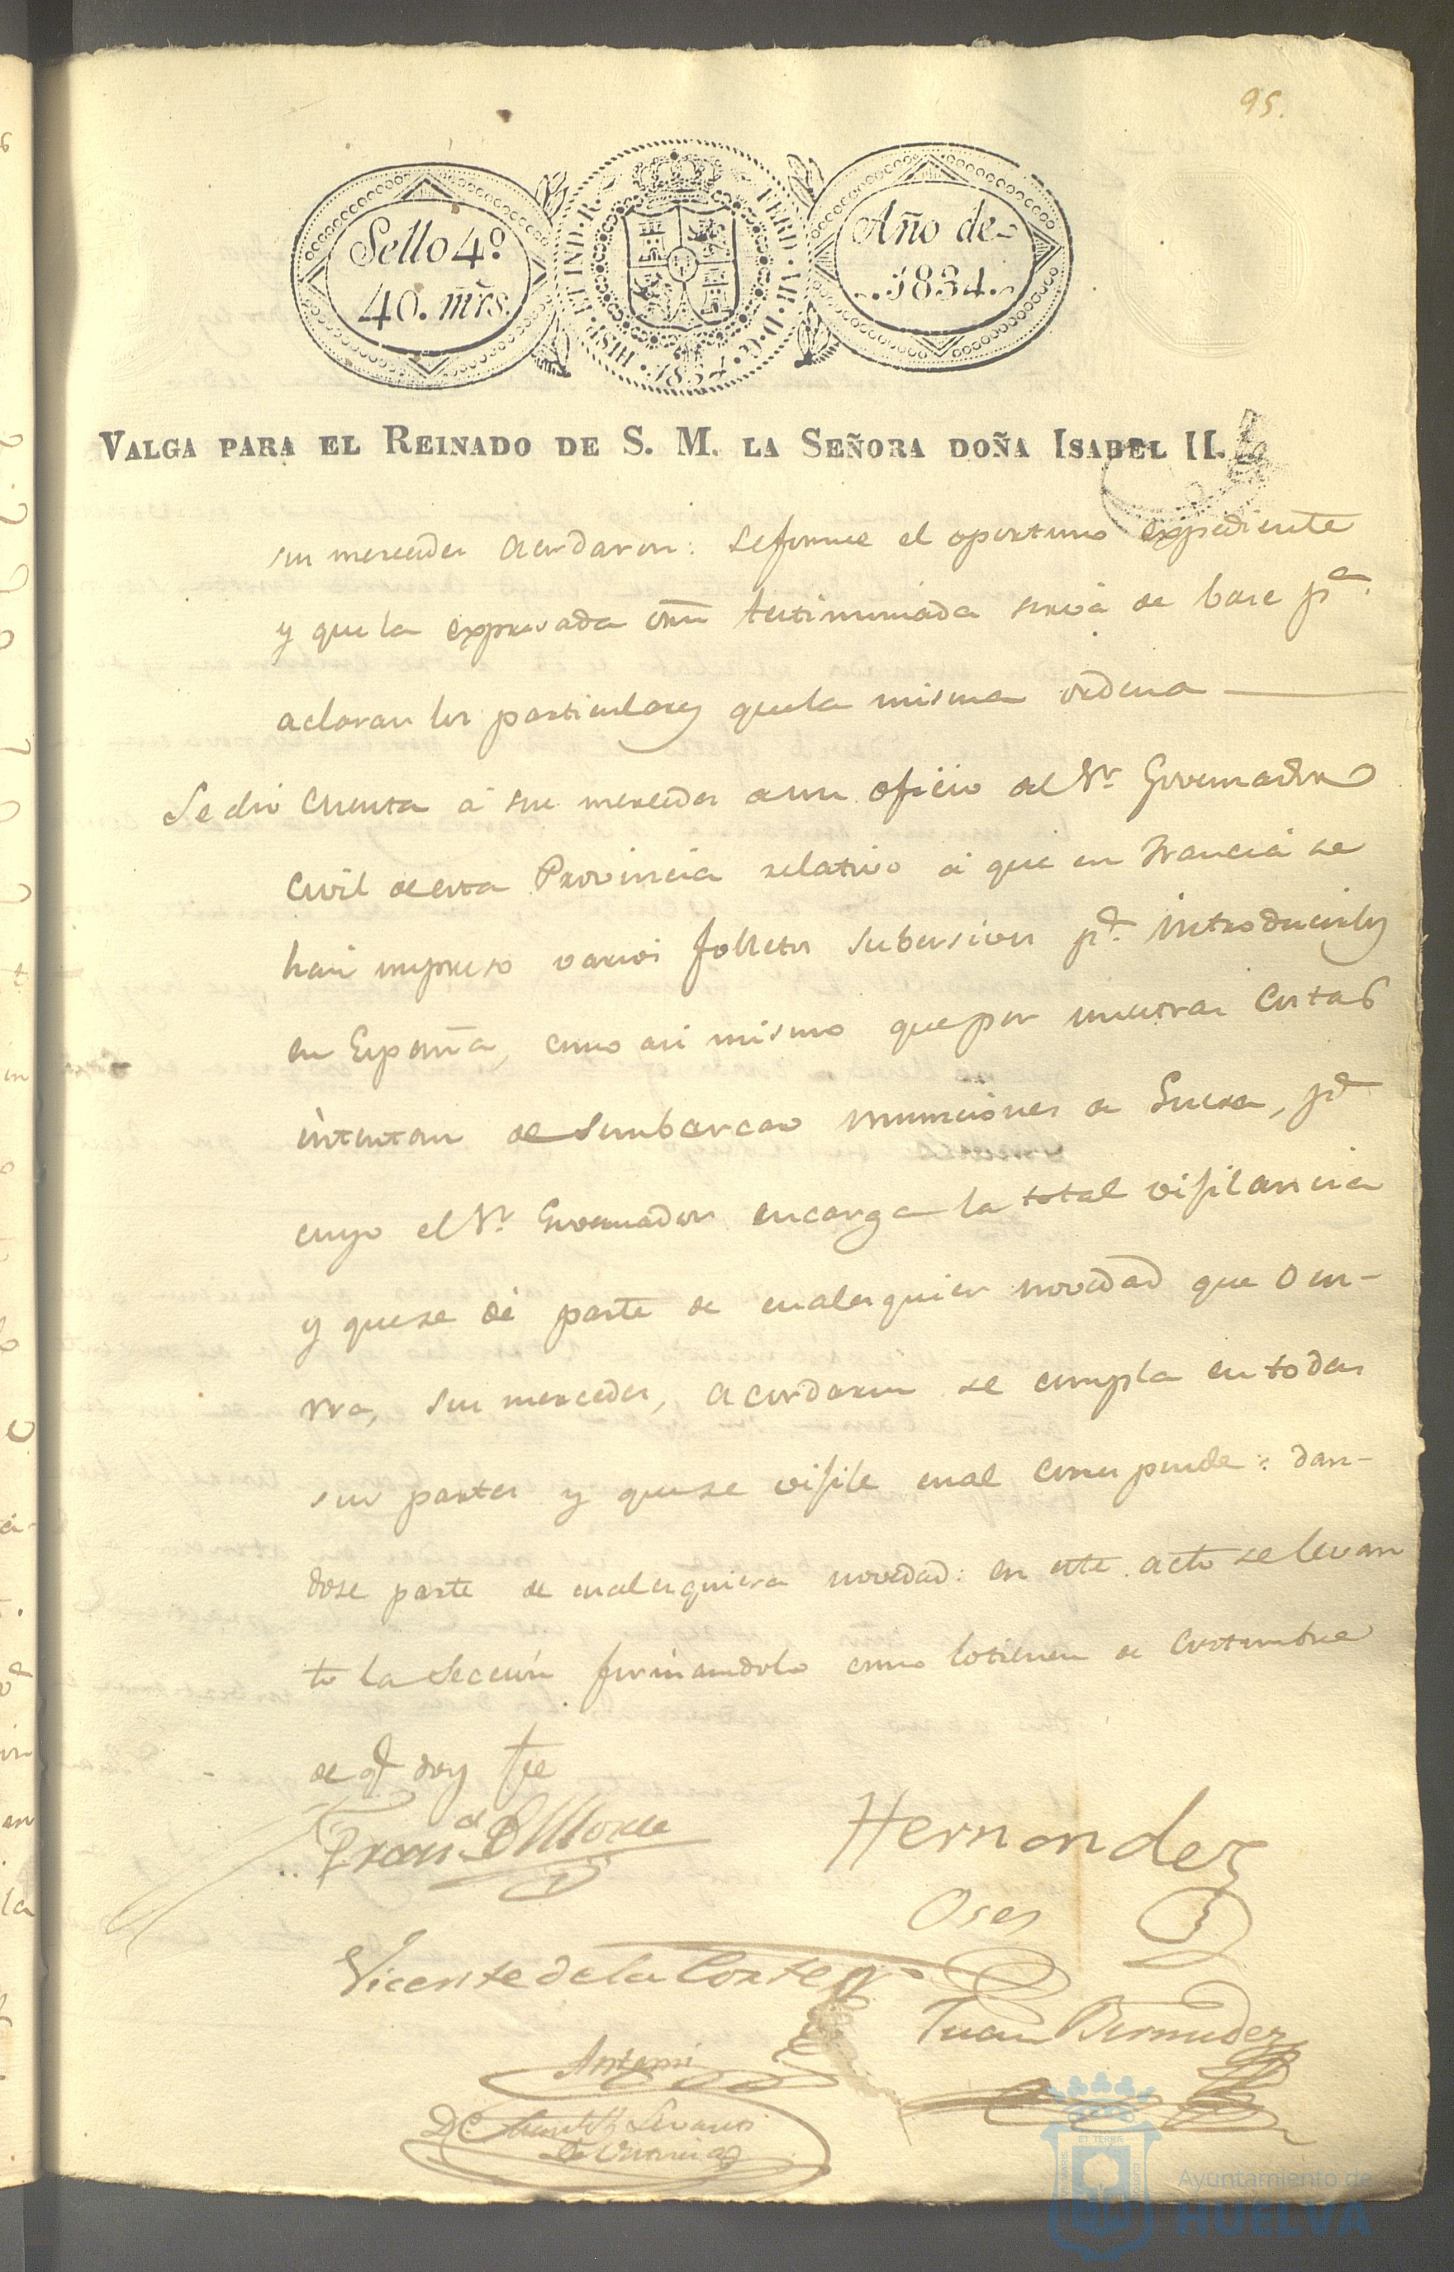 95.
Sello 4º
40. mr̃s.
HISP. ET IND. R. FERD. VII. D. G. 1834.
Año de
1834.
VALGA PARA EL REINADO DE S. M. LA SEÑORA DOÑA ISABEL II.
sus mercedes acordaron: se forme el oportuno expediente
y que la expresada orn testimoniada sirva de base pª.
aclarar los particulares que la misma ordena
Se dio cuenta á sus mercedes de un oficio del Sr. Governador
Civil de esta Provincia relativo á que en Francia se
han impreso varios folletos subersivos pª. introducirlos
en España, como asi mismo que por nuestras Costas
intentan desembarcar municiones de Guerra, pª
cuyo el Sr. Governador encarga la total vijilancia
y que se dé parte de cualesquier novedad que ocu-
rra, sus mercedes, acordaron se cumpla en todas
sus partes y que se vijile cual corresponde: dan-
dose parte de cualesquiera novedad: en este acto se levan
to la Seccion firmandolo como lo tienen de Costumbre
de q doy fe
Hernandez
Oses
Vicente de la Corte
Juan Bermudez
Antemi